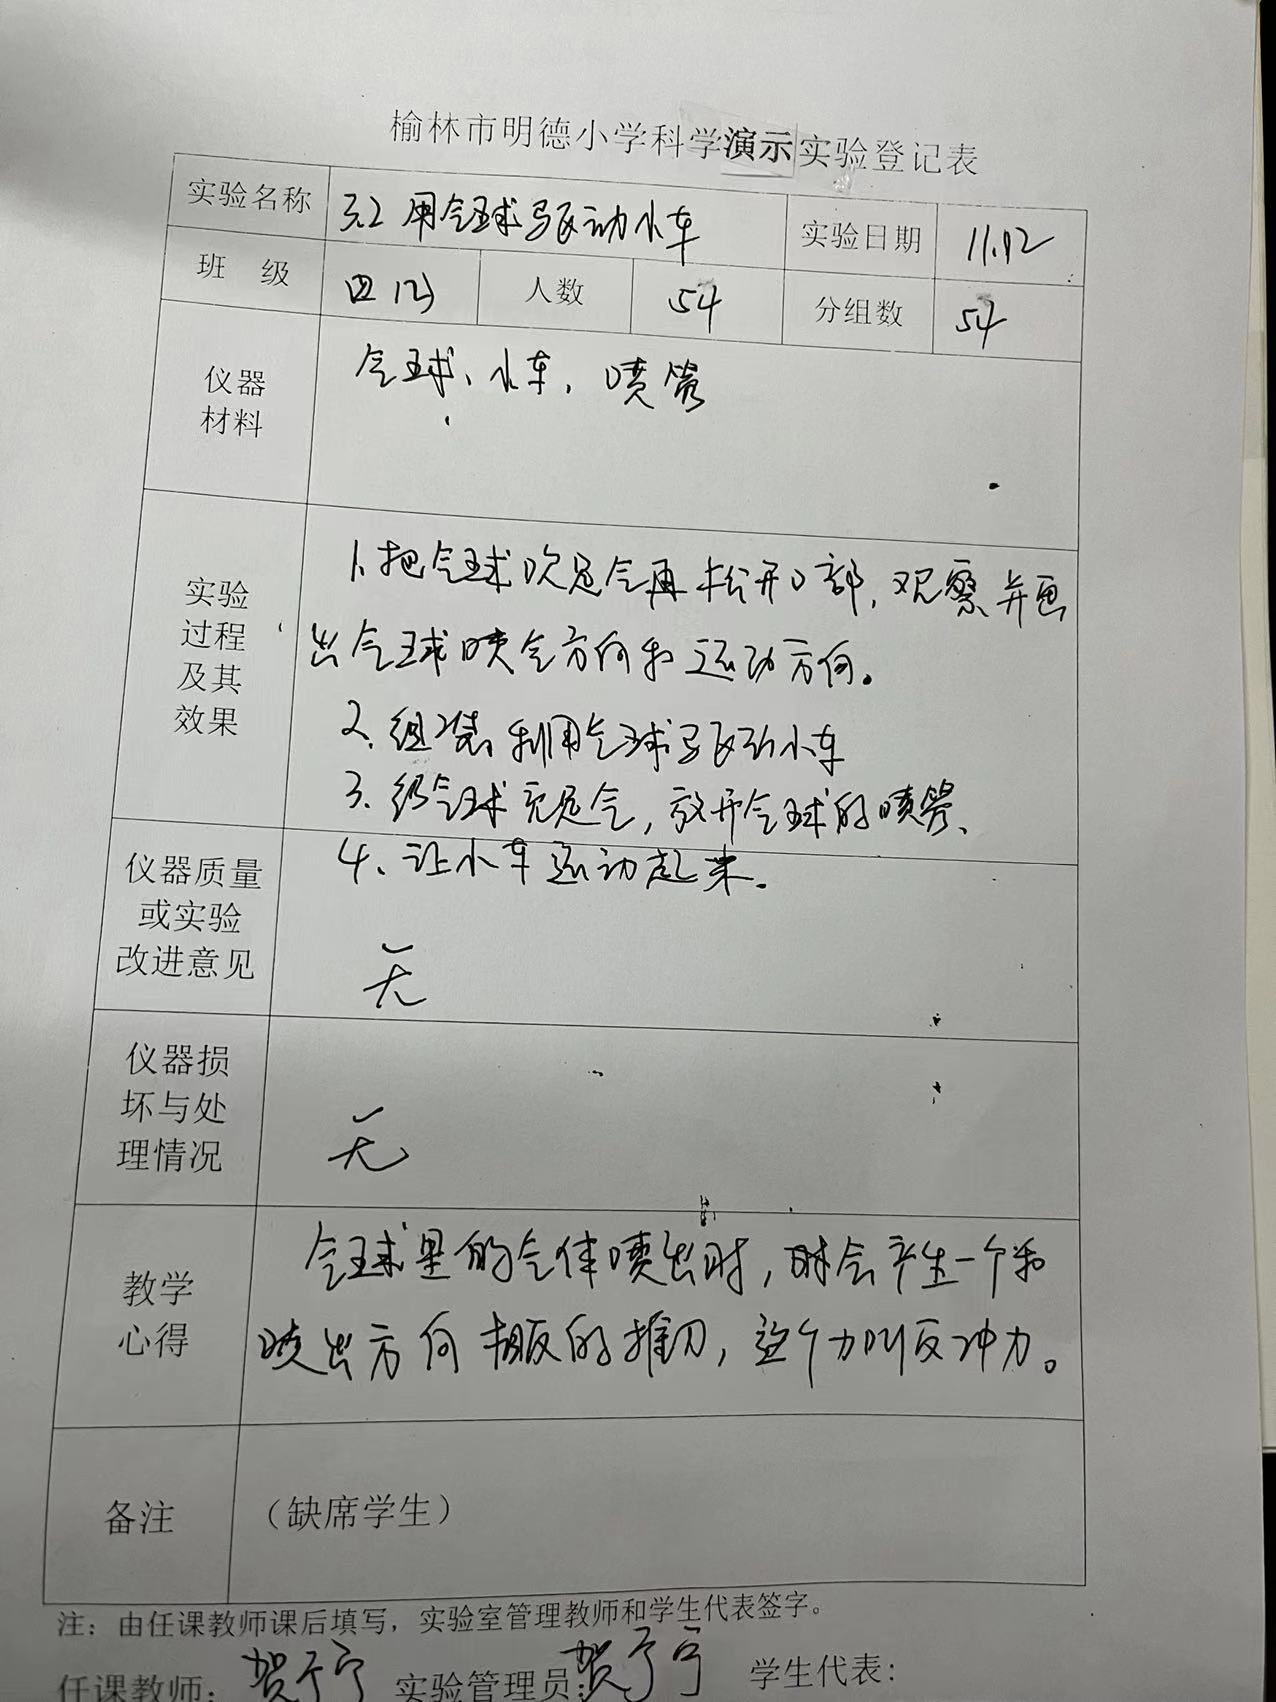 榆林市明德小学科学演示实验登记表
实验名称 3.2 用气球驱动小车 实验日期 11.12
班 级 四(2) 人数 54 分组数 54
仪器材料 气球、小车、喷管
实验过程及其效果
1、把气球吹足气再松开口部,观察并画
出气球喷气方向和运动方向。
2、组装利用气球驱动小车
3、给气球充足气,放开气球的喷管、
4、让小车运动起来。
仪器质量或实验改进意见
无
仪器损坏与处理情况
无
教学心得
气球里的气体喷出时,时会产生一个和
喷出方向相反的推力,这个力叫反冲力。
备注 (缺席学生)
注:由任课教师课后填写,实验室管理教师和学生代表签字。
任课教师: 贺 实验管理员: 贺 学生代表: